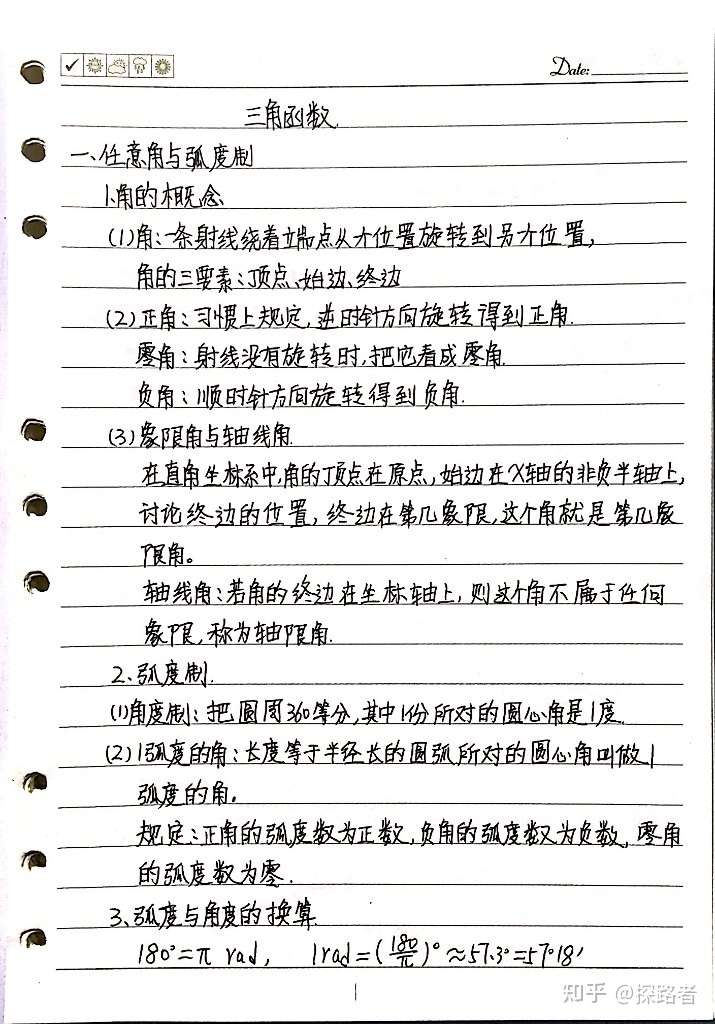 Date:
三角函数.
一、任意角与弧度制
1.角的概念
(1)角:一条射线绕着端点从一个位置旋转到另一个位置,
角的三要素:顶点、始边、终边
(2)正角:习惯上规定,逆时针方向旋转得到正角.
零角:射线没有旋转时,把它看成零角.
负角:顺时针方向旋转得到负角.
(3)象限角与轴线角.
在直角坐标系中,角的顶点在原点,始边在X轴的非负半轴上,
讨论终边的位置,终边在第几象限,这个角就是第几象
限角。
轴线角:若角的终边在坐标轴上,则这个角不属于任何
象限,称为轴限角.
2、弧度制.
(1)角度制:把圆周360等分,其中1份所对的圆心角是1度.
(2)1弧度的角:长度等于半径长的圆弧所对的圆心角叫做1
弧度的角。
规定:正角的弧度数为正数,负角的弧度数为负数,零角
的弧度数为零.
3、弧度与角度的换算
180°=π rad, 1rad=(180/π)°≈57.3°=57°18′
1
知乎 @探路者